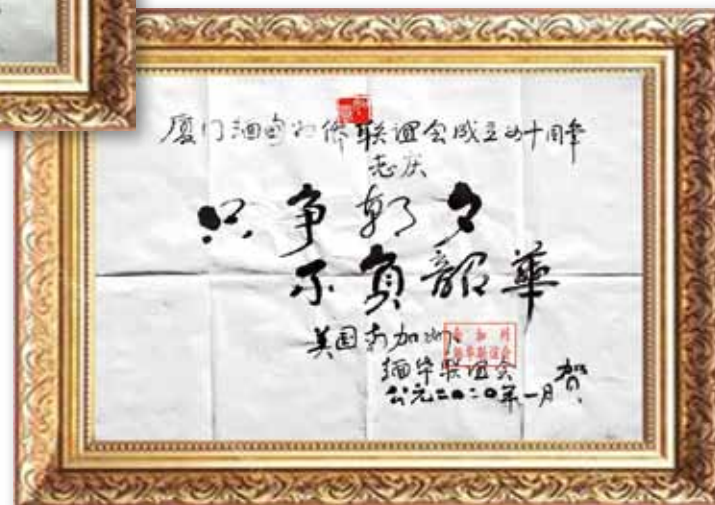 厦门缅甸归侨联谊会成立四十周年
志庆
只争朝夕
不负韶華
美国南加州
缅华联谊会
公元二〇二〇年一月 贺
南加州
缅华联谊会